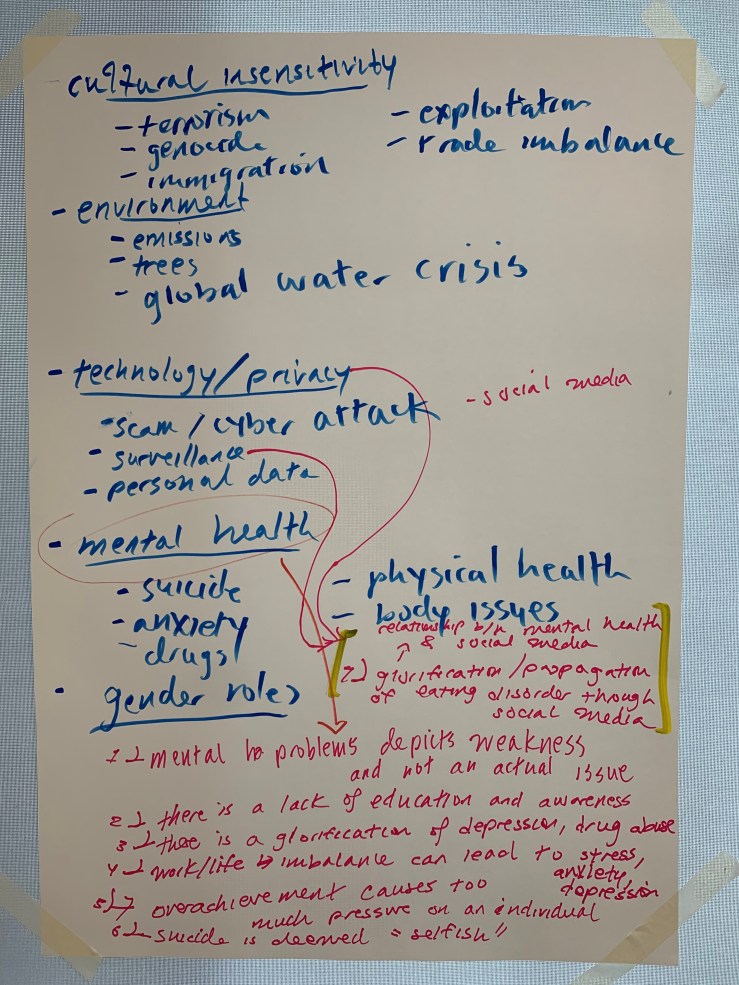 cultural insensitivity
- terrorism
- genocide
- immigration
- exploitation
- trade imbalance
- environment
- emissions
- trees
- global water crisis
- technology/privacy
- social media
- scam / cyber attack
- surveillance
- personal data
- mental health
- suicide
- anxiety
- drugs
- physical health
- body issues
relationship b/n mental health
& social media
7) glorification/propagation
of eating disorder though
social media
- gender roles
1) mental problems depicts weakness
and not an actual issue
2) there is a lack of education and awareness
3) there is a glorification of depression, drug abuse
4) work/life imbalance can lead to stress,
anxiety,
depression
5) overachievement causes too
much pressure on an individual
6) suicide is deemed "selfish"